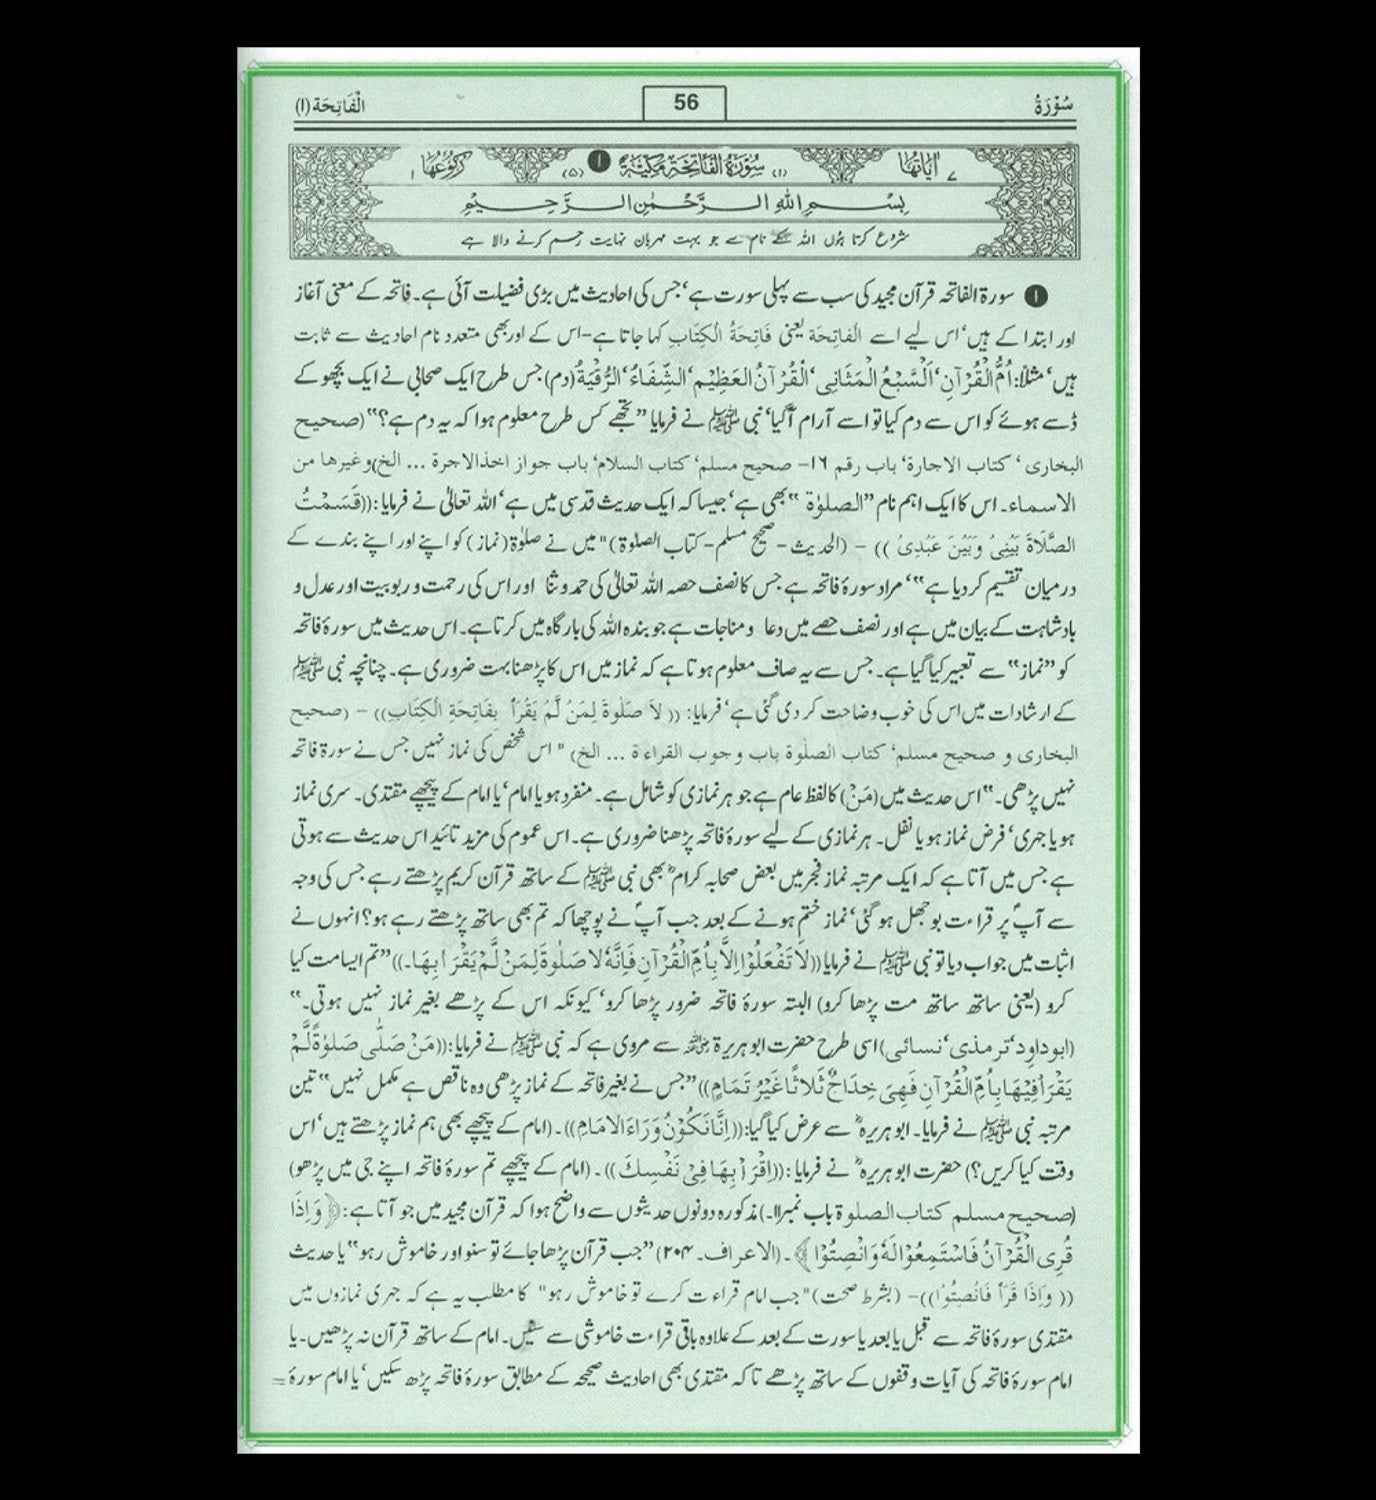 سُوْرَةُ
56
الْفَاتِحَة (۱)
اٰیَاتُهَا ۷
(۱) سُوْرَةُ الْفَاتِحَةِ مَكِّيَّةٌ ۱ (۵)
رُكُوْعُهَا ۱
بِسْمِ اللهِ الرَّحْمٰنِ الرَّحِيْمِ
شروع کرتا ہوں اللہ کے نام سے جو بہت مہربان نہایت رحم کرنے والا ہے
۱ سورۃ الفاتحہ قرآن مجید کی سب سے پہلی سورت ہے‘ جس کی احادیث میں بڑی فضیلت آئی ہے۔ فاتحہ کے معنی آغاز
اور ابتدا کے ہیں‘ اس لیے اسے اَلْفَاتِحَة یعنی فَاتِحَةُ الْكِتَابِ کہا جاتا ہے-اس کے اور بھی متعدد نام احادیث سے ثابت
ہیں‘ مثلاً: اُمُّ الْقُرْآنِ‘ اَلسَّبْعُ الْمَثَانِی‘ اَلْقُرْآنُ الْعَظِیْم‘ اَلشِّفَاءُ‘ اَلرُّقْیَةُ (دم) جس طرح ایک صحابی نے ایک بچھو کے
ڈسے ہوئے کو اس سے دم کیا تو اسے آرام آگیا‘ نبی ﷺ نے فرمایا ”تجھے کس طرح معلوم ہوا کہ یہ دم ہے؟“ (صحیح
البخاری‘ کتاب الاجارة‘ باب رقم ۱۶- صحیح مسلم‘ کتاب السلام‘ باب جواز اخذ الاجرة ... الخ) وغیرھا من
الاسماء۔ اس کا ایک اہم نام ”الصلوٰة“ بھی ہے‘ جیسا کہ ایک حدیث قدسی میں ہے‘ اللہ تعالیٰ نے فرمایا: ((قَسَمْتُ
الصَّلَاةَ بَیْنِیْ وَبَیْنَ عَبْدِیْ )) - (الحدیث- صحیح مسلم- کتاب الصلٰوة) "میں نے صلوٰة (نماز) کو اپنے اور اپنے بندے کے
درمیان تقسیم کر دیا ہے“‘ مراد سورۂ فاتحہ ہے جس کا نصف حصہ اللہ تعالیٰ کی حمد و ثنا اور اس کی رحمت و ربوبیت اور عدل و
بادشاہت کے بیان میں ہے اور نصف حصے میں دعا و مناجات ہے جو بندہ اللہ کی بارگاہ میں کرتا ہے۔ اس حدیث میں سورۂ فاتحہ
کو ”نماز“ سے تعبیر کیا گیا ہے۔ جس سے یہ صاف معلوم ہوتا ہے کہ نماز میں اس کا پڑھنا بہت ضروری ہے۔ چنانچہ نبی ﷺ
کے ارشادات میں اس کی خوب وضاحت کر دی گئی ہے‘ فرمایا: (( لاَ صَلٰوةَ لِمَنْ لَّمْ یَقْرَأْ بِفَاتِحَةِ الْكِتَابِ)) - (صحیح
البخاری و صحیح مسلم‘ کتاب الصلٰوة باب وجوب القراءة ... الخ) " اس شخص کی نماز نہیں جس نے سورۃ فاتحہ
نہیں پڑھی۔“ اس حدیث میں (مَنْ) کا لفظ عام ہے جو ہر نمازی کو شامل ہے۔ منفرد ہو یا امام‘ یا امام کے پیچھے مقتدی۔ سری نماز
ہو یا جہری‘ فرض نماز ہو یا نفل۔ ہر نمازی کے لیے سورۂ فاتحہ پڑھنا ضروری ہے۔ اس عموم کی مزید تائید اس حدیث سے ہوتی
ہے جس میں آتا ہے کہ ایک مرتبہ نماز فجر میں بعض صحابہ کرام ؓ بھی نبی ﷺ کے ساتھ قرآن کریم پڑھتے رہے جس کی وجہ
سے آپؐ پر قراءت بوجھل ہو گئی‘ نماز ختم ہونے کے بعد جب آپؐ نے پوچھا کہ تم بھی ساتھ پڑھتے رہے ہو؟ انہوں نے
اثبات میں جواب دیا تو نبی ﷺ نے فرمایا ((لاَ تَفْعَلُوْا اِلاَّ بِاُمِّ الْقُرْآنِ فَاِنَّهٗ لَا صَلٰوةَ لِمَنْ لَّمْ یَقْرَأْ بِهَا۔)) ”تم ایسا مت کیا
کرو (یعنی ساتھ ساتھ مت پڑھا کرو) البتہ سورۂ فاتحہ ضرور پڑھا کرو‘ کیونکہ اس کے پڑھے بغیر نماز نہیں ہوتی۔“
(ابوداود‘ ترمذی‘ نسائی) اسی طرح حضرت ابو ہریرة ؓ سے مروی ہے کہ نبی ﷺ نے فرمایا: ((مَنْ صَلّٰی صَلٰوةً لَّمْ
یَقْرَأْ فِیْهَا بِاُمِّ الْقُرْآنِ فَهِیَ خِدَاجٌ ثَلَاثًا غَیْرُ تَمَامٍ)) ”جس نے بغیر فاتحہ کے نماز پڑھی وہ ناقص ہے مکمل نہیں“ تین
مرتبہ نبی ﷺ نے فرمایا۔ ابو ہریرہ ؓ سے عرض کیا گیا: ((اِنَّا نَكُوْنُ وَرَاءَ الْاِمَامِ))۔ (امام کے پیچھے بھی ہم نماز پڑھتے ہیں‘ اس
وقت کیا کریں؟) حضرت ابو ہریرہ ؓ نے فرمایا: ((اِقْرَأْ بِهَا فِیْ نَفْسِكَ))۔ (امام کے پیچھے تم سورۂ فاتحہ اپنے جی میں پڑھو)
(صحیح مسلم کتاب الصلوة باب نمبر۱۱۔) مذکورہ دونوں حدیثوں سے واضح ہوا کہ قرآن مجید میں جو آتا ہے: ﴿ وَاِذَا
قُرِئَ الْقُرْآنُ فَاسْتَمِعُوْا لَهٗ وَاَنْصِتُوْا ﴾۔ (الاعراف۔ ۲۰۴) ”جب قرآن پڑھا جائے تو سنو اور خاموش رہو“ یا حدیث
(( وَاِذَا قَرَأَ فَانْصِتُوْا))- (بشرط صحت) "جب امام قراءت کرے تو خاموش رہو" کا مطلب یہ ہے کہ جہری نمازوں میں
مقتدی سورۂ فاتحہ سے قبل یا بعد یا سورت کے بعد کے علاوہ باقی قراءت خاموشی سے سنیں۔ امام کے ساتھ قرآن نہ پڑھیں۔ یا
امام سورۂ فاتحہ کی آیات وقفوں کے ساتھ پڑھے تاکہ مقتدی بھی احادیث صحیحہ کے مطابق سورۂ فاتحہ پڑھ سکیں‘ یا امام سورۂ =